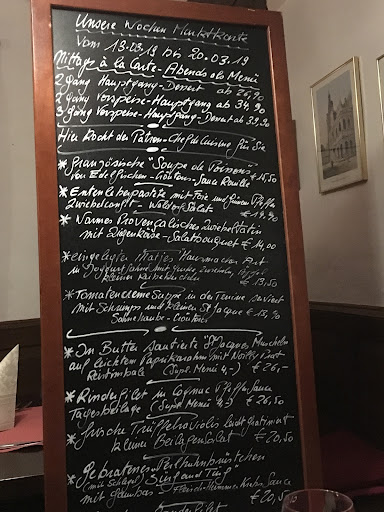 Unsere Wochen Marktkarte
vom 13.03.19 bis 20.03.19
Mittags à la Carte - Abends als Menü
2 gang Hauptgang - Dessert ab 26,90
2 gang Vorspeise - Hauptgang ab 34,90
3 gang Vorspeise - Hauptgang - Dessert ab 39,90
Hier kocht der Patron - Chef de Cuisine für Sie
* Französische "Soupe de Poisson"
von Edelfischen - Croûtons - Sauce Rouille € 15,50
* Entenleberpastete mit Foie und grünem Pfeffer
Zwiebelconfit - Waldorfsalat € 19,90
* Warmes Provençalisches Zwiebeltatin
mit Ziegenkäse - Salatbouquet € 14,00
* eingelegter Matjes Hausmacher Art
in Joghurt Sahne mit
kleiner € 13,50
* Tomatencreme Suppe in der Terrine serviert
mit Shrimps und kleinen St Jacque € 15,90
Sahnehaube - Croûtons
* In Butter sautierte "St Jacques Muscheln
auf leichtem Paprikarahm mit Noilly Prat
Reistimbale (Suppl. Menü 4,-) € 26,-
* Rinderfilet in Cognac Pfeffer Sauce
Tagesbeilage (Suppl Menü 4,-) € 26,50
* frische Trüffelraviolis leicht gratiniert
kleiner Beilagensalat € 20,50
* gebratenes Perlhuhnbrüstchen
(mit Schlegel) Surf and Turf
mit gambas Sauce
€ 20,50